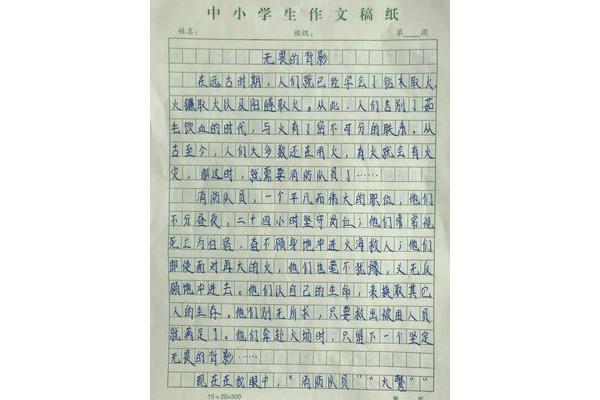 中小学生作文稿纸
姓名： 班级： 第 周
无畏的背影
在远古时期，人们就已经学会了钻木取火，
火镰取火以及阳燧取火。从此，人们告别了茹
毛饮血的时代，与火有了密不可分的联系。从
古至今，人们大多数还在用火，有火就会有火
灾，那这时，就需要消防队员了……
消防队员，一个平凡而伟大的职位，他们
不分昼夜，二十四小时坚守岗位；他们常常视
死亡为归宿，奋不顾身地冲进火海救人；他们
即使面对再大的火，他们也毫不犹豫，义无反
顾地冲进去。他们以自己的生命，来换取其它
人的生存。他们别无所求，只要救出被困人员
就满足了。他们奔赴火场时，只留下一个坚定
无畏的背影……
现在在我眼中，“消防队员”“火警”“
15×20=300 第 页